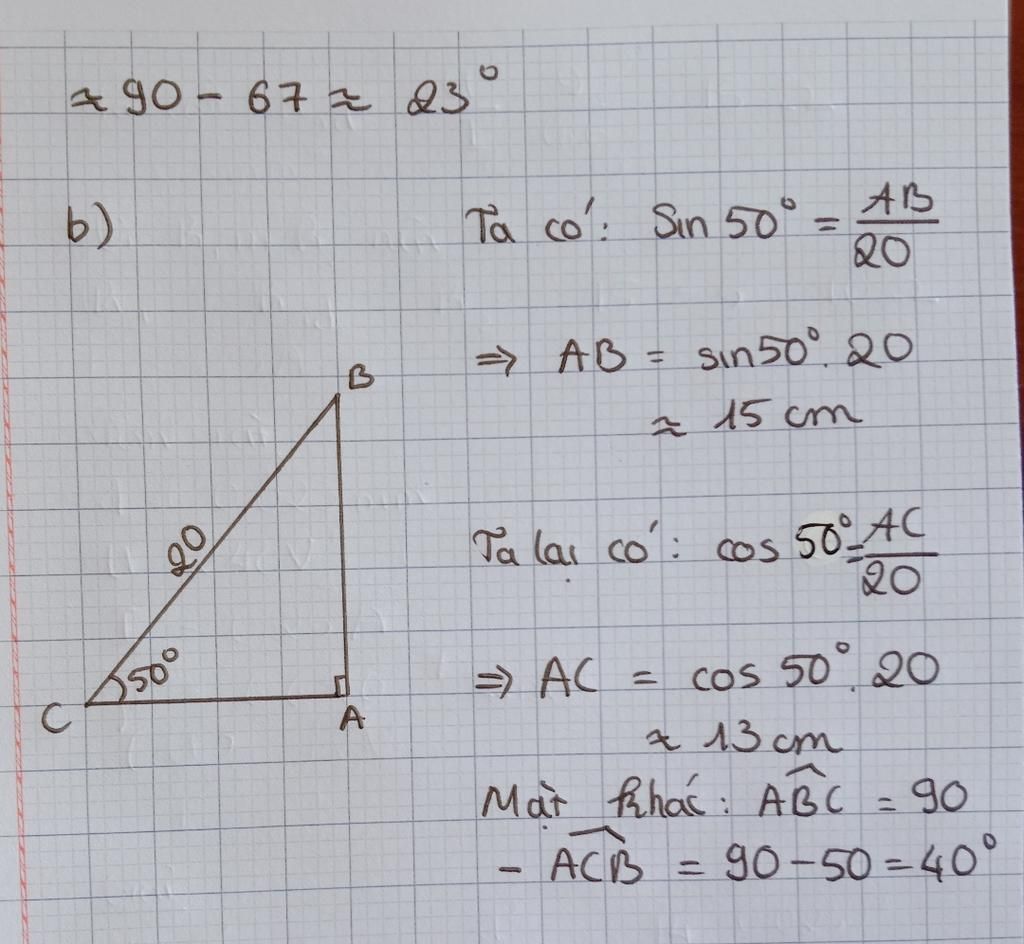 ≈ 90 - 67 ≈ 23°
b)
Ta có: Sin 50° = AB/20
⇒ AB = sin50°. 20
≈ 15 cm
B
20
50°
C
A
Ta lại có: cos 50° = AC/20
⇒ AC = cos 50°. 20
≈ 13 cm
Mặt khác: \widehat{ABC} = 90
- \widehat{ACB} = 90 - 50 = 40°